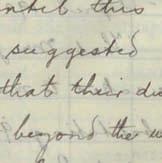 until this
suggested
that their
beyond the